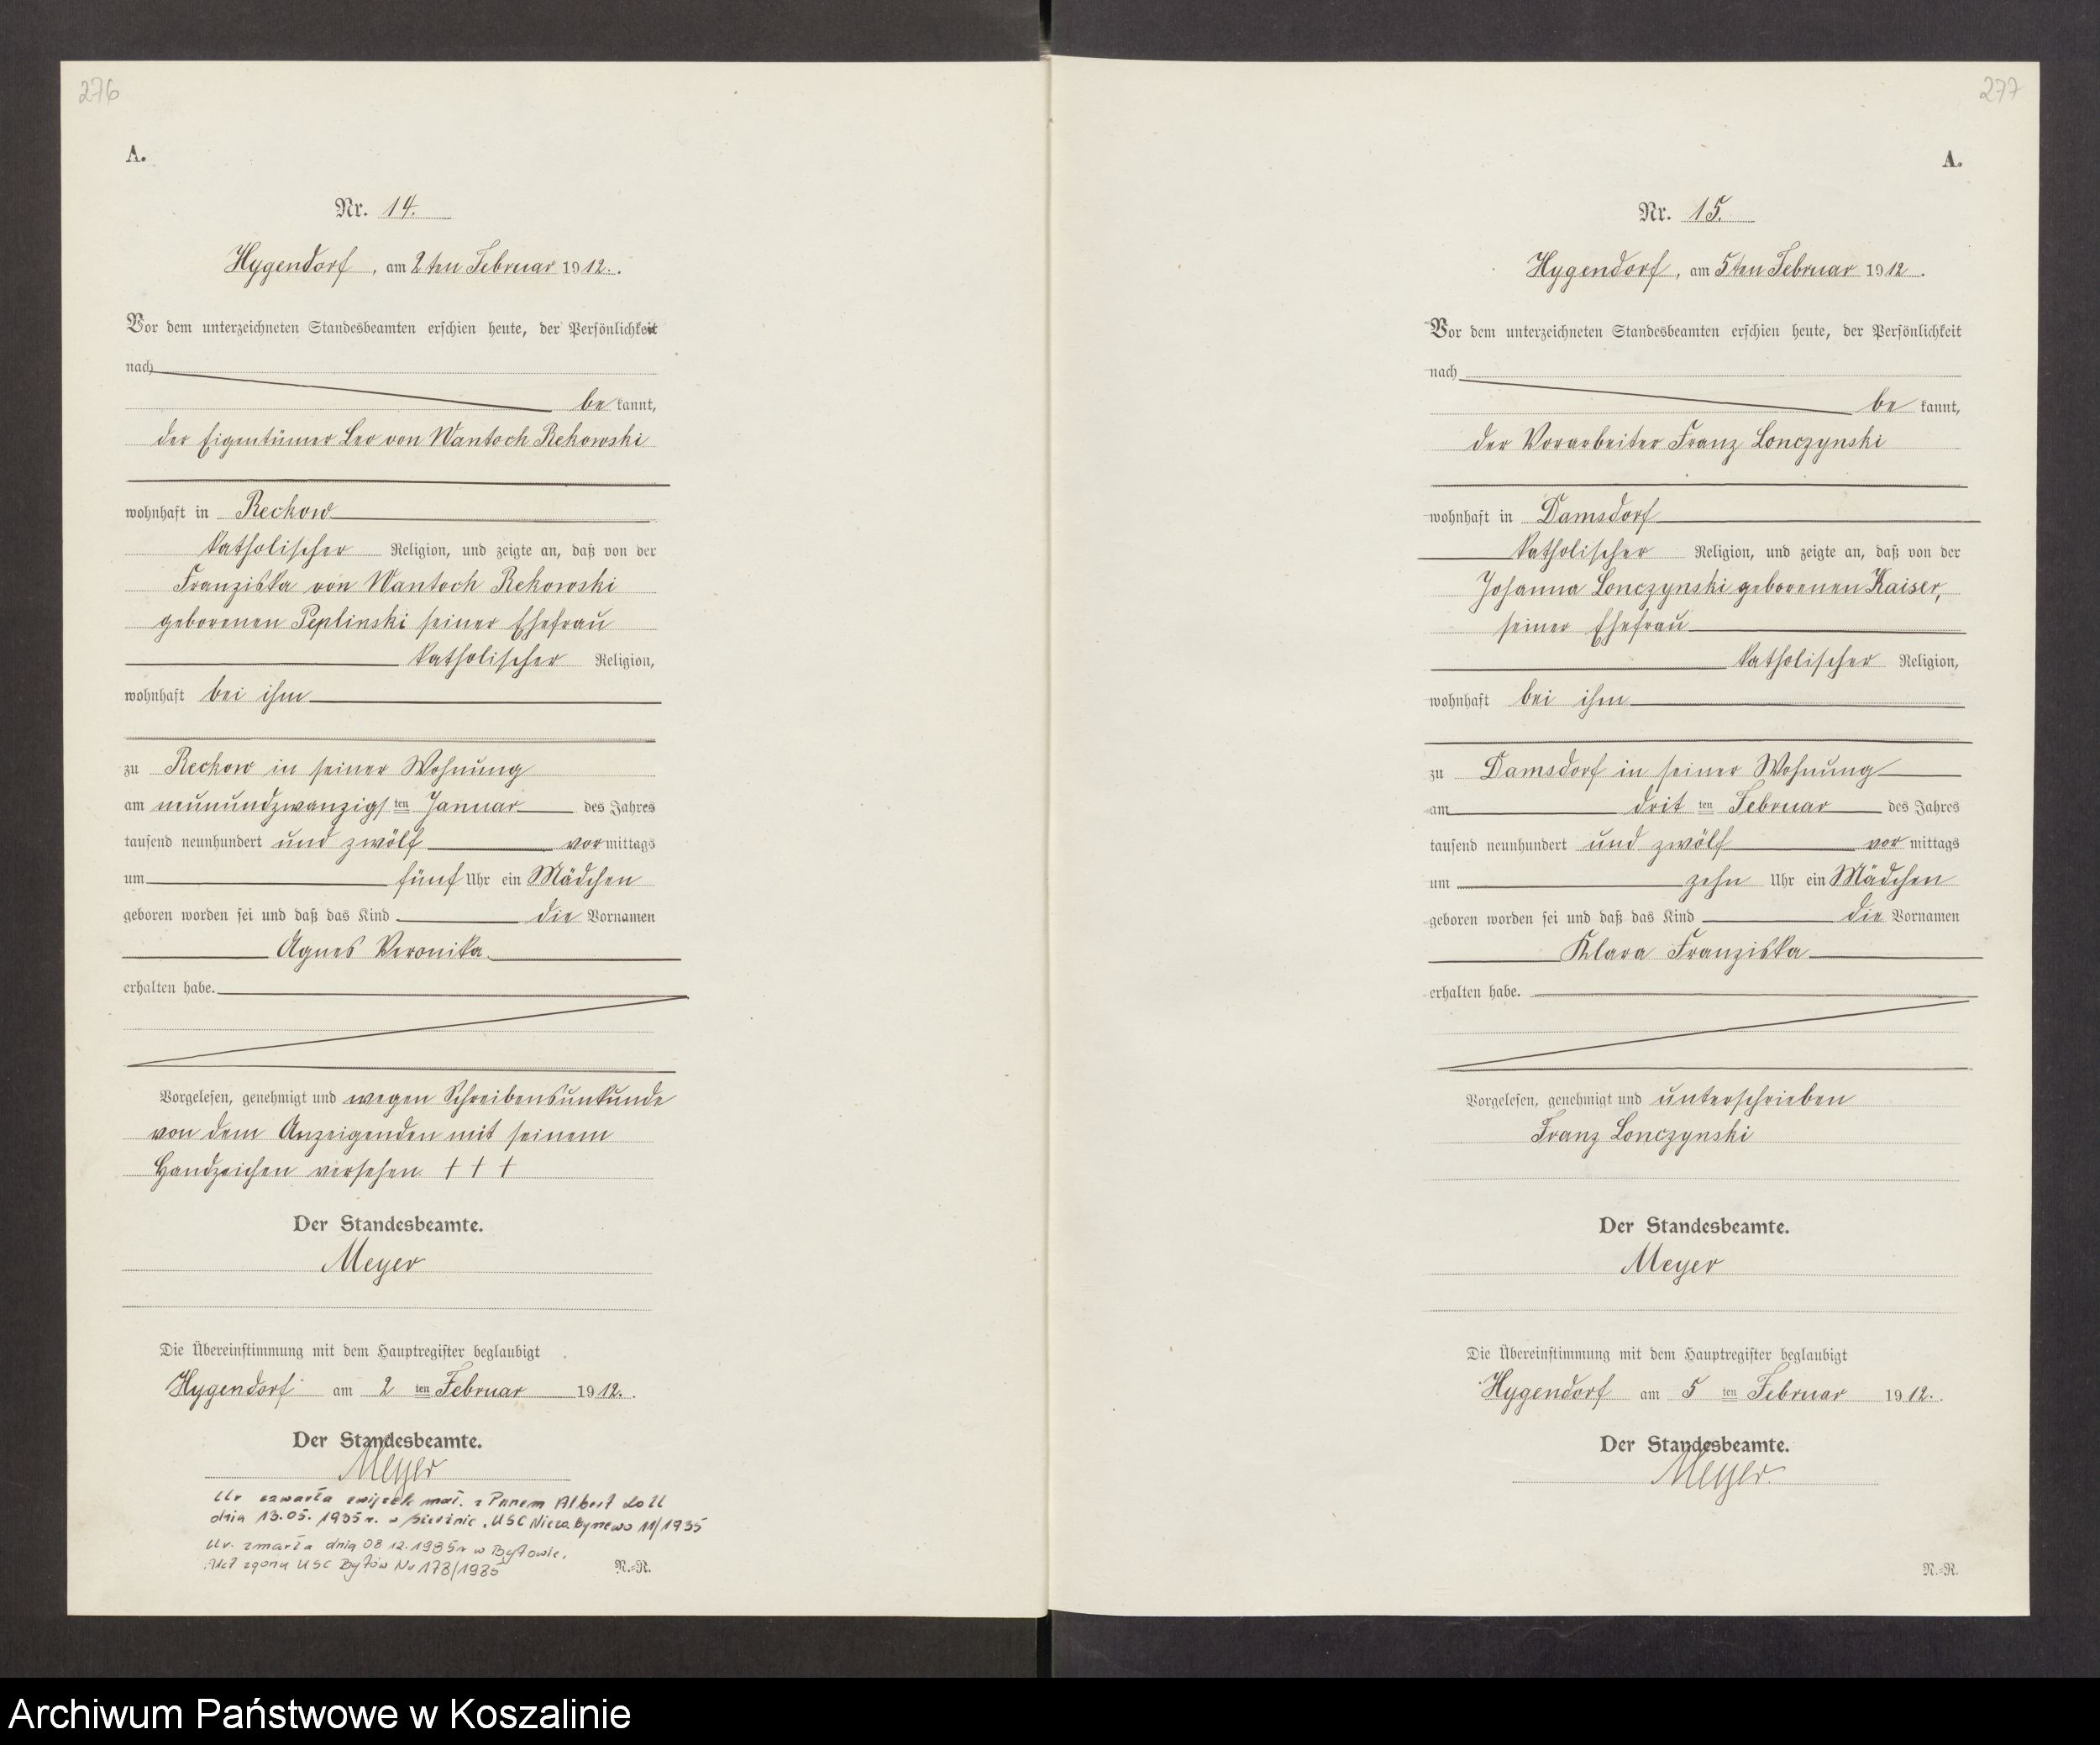 276
A.
Nr. 14.
Hygendorf, am 2ten Februar 1912.
Vor dem unterzeichneten Standesbeamten erschien heute, der Persönlichkeit
nach
be kannt,
der Eigentümer Leo von Wantoch Rekowski
wohnhaft in Reckow
katholischer Religion, und zeigte an, daß von der
Franziska von Wantoch Rekowski
geborenen Peplinski seiner Ehefrau
katholischer Religion,
wohnhaft bei ihm
zu Reckow in seiner Wohnung
am neunundzwanzigsten Januar des Jahres
tausend neunhundert und zwölf vormittags
um fünf Uhr ein Mädchen
geboren worden sei und daß das Kind die Vornamen
Agnes Veronika
erhalten habe.
Vorgelesen, genehmigt und wegen Schreibensunkunde
von dem Anzeigenden mit seinem
Handzeichen versehen. † † †
Der Standesbeamte.
Meyer
Die Übereinstimmung mit dem Hauptregister beglaubigt
Hygendorf am 2 ten Februar 1912.
Der Standesbeamte.
Meyer
Ur zawarła związek mał. z Panem Albert Loll
dnia 13.05.1935 r. w, USC 11/1935
Ur. zmarła dnia 08 12.1985 r w Bytowie.
Akt zgonu USC Bytów Nr 178/1985
N.=R.
277
A.
Nr. 15.
Hygendorf, am 5ten Februar 1912.
Vor dem unterzeichneten Standesbeamten erschien heute, der Persönlichkeit
nach
be kannt,
der Vorarbeiter Franz Lonczynski
wohnhaft in Damsdorf
katholischer Religion, und zeigte an, daß von der
Johanna Lonczynski geborenen Kaiser,
seiner Ehefrau
katholischer Religion,
wohnhaft bei ihm
zu Damsdorf in seiner Wohnung
am dritten Februar des Jahres
tausend neunhundert und zwölf vormittags
um zehn Uhr ein Mädchen
geboren worden sei und daß das Kind die Vornamen
Klara Franziska
erhalten habe.
Vorgelesen, genehmigt und unterschrieben
Franz Lonczynski
Der Standesbeamte.
Meyer
Die Übereinstimmung mit dem Hauptregister beglaubigt
Hygendorf am 5 ten Februar 1912.
Der Standesbeamte.
Meyer.
N.=R.
Archiwum Państwowe w Koszalinie